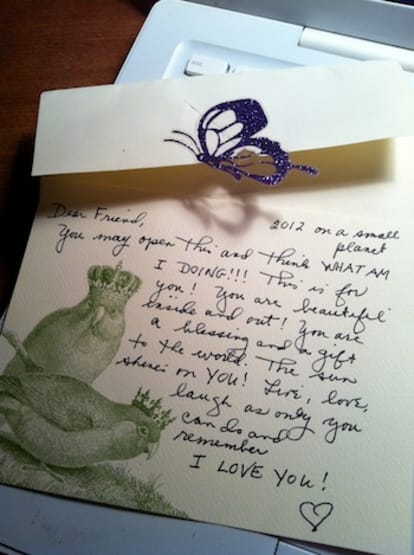 2012 on a small
planet
Dear Friend,
You may open this and think WHAT AM
I DOING!!! This is for
you! You are beautiful
inside and out! You are
a blessing and a gift
to the world. The sun
shines on YOU! Live, love,
laugh as only you
can do and
remember
I LOVE YOU!